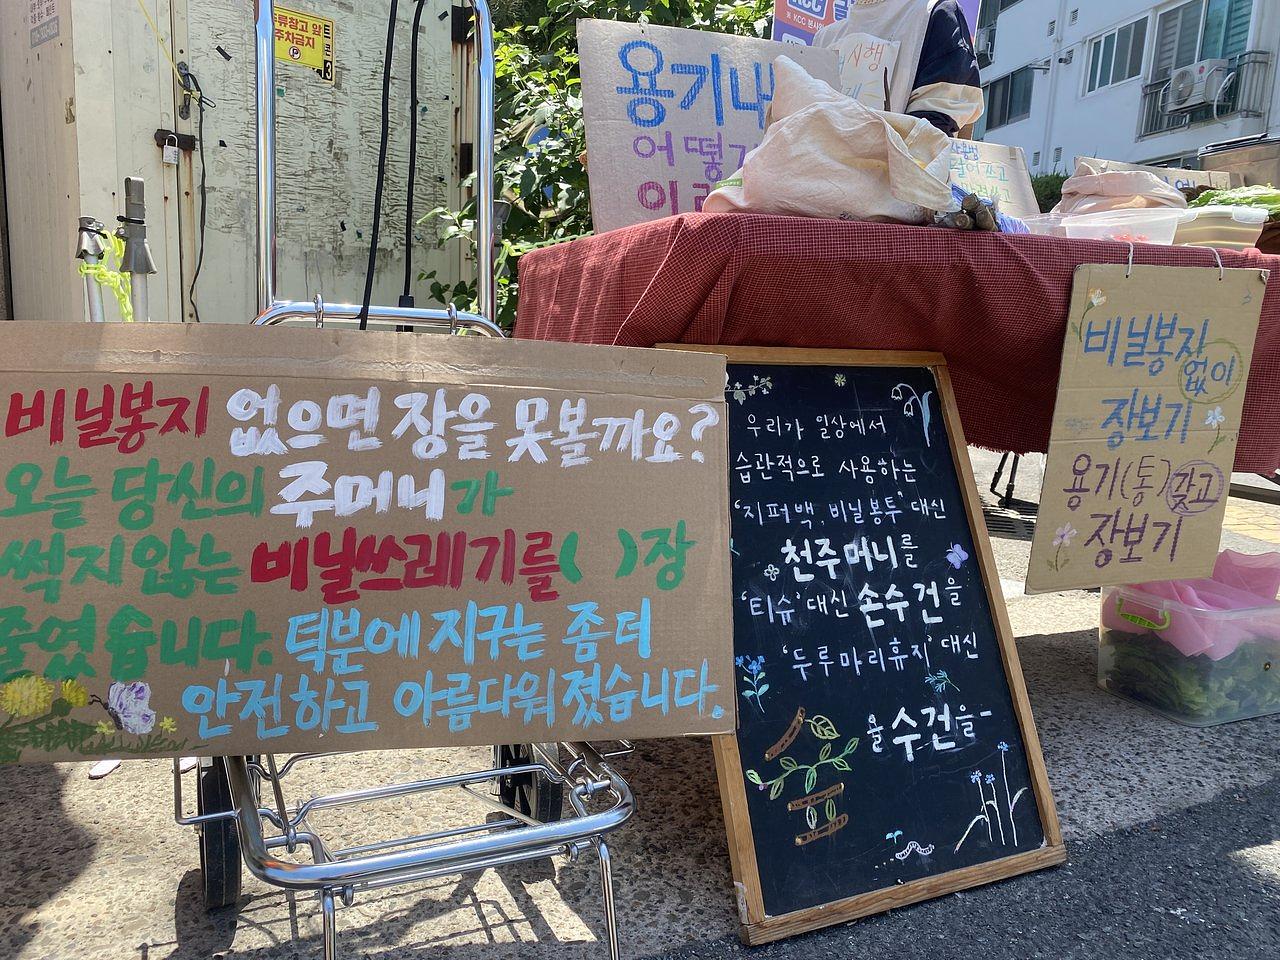 주차금지
KCC
용기내
시행
비닐봉지 없으면 장을 못볼까요?
오늘 당신의 주머니가
썩지않는 비닐쓰레기를( )장
줄였습니다. 덕분에 지구는 좀 더
안전하고 아름다워졌습니다.
우리가 일상에서
습관적으로 사용하는
'지퍼백, 비닐봉투' 대신
천주머니를
'티슈' 대신 손수건을
'두루마리휴지' 대신
수건을-
비닐봉지
없이
장보기
용기(통)갖고
장보기